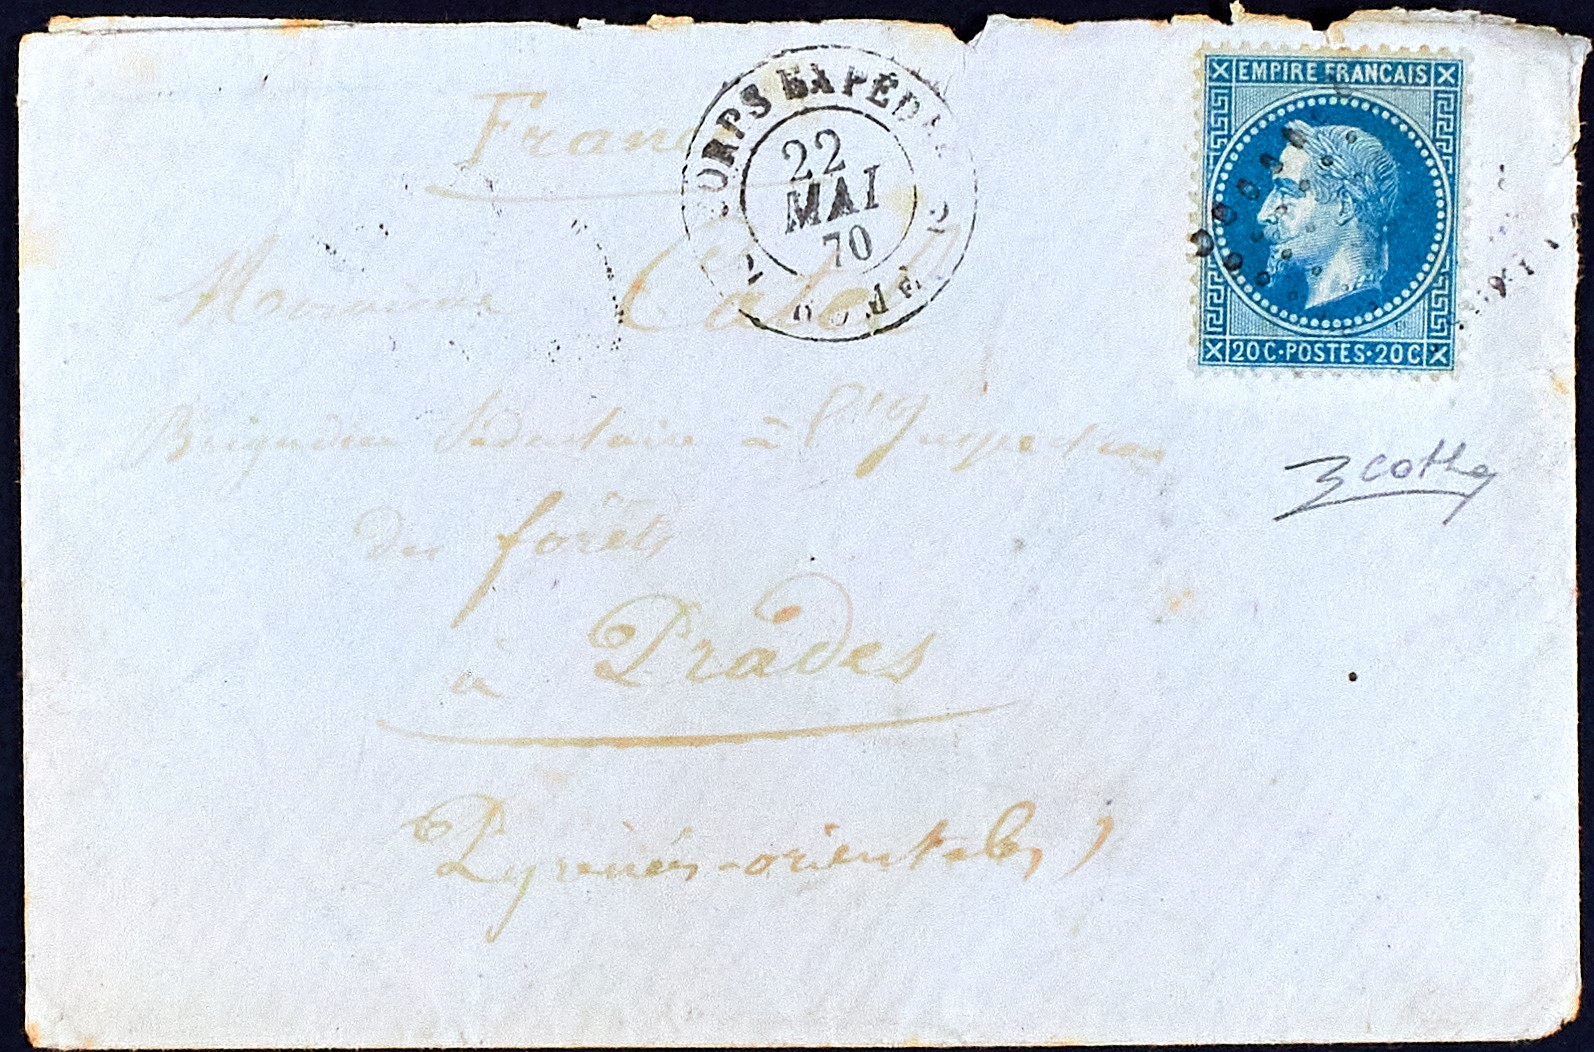 EMPIRE FRANCAIS
CORPS EXPÉD
22
MAI
70
2 2
20C·POSTES·20C
Franc
Monsieur
Brigadier Sédentaire à l'Inspection
des forêts
à Prades
Pyrénées-orientales)